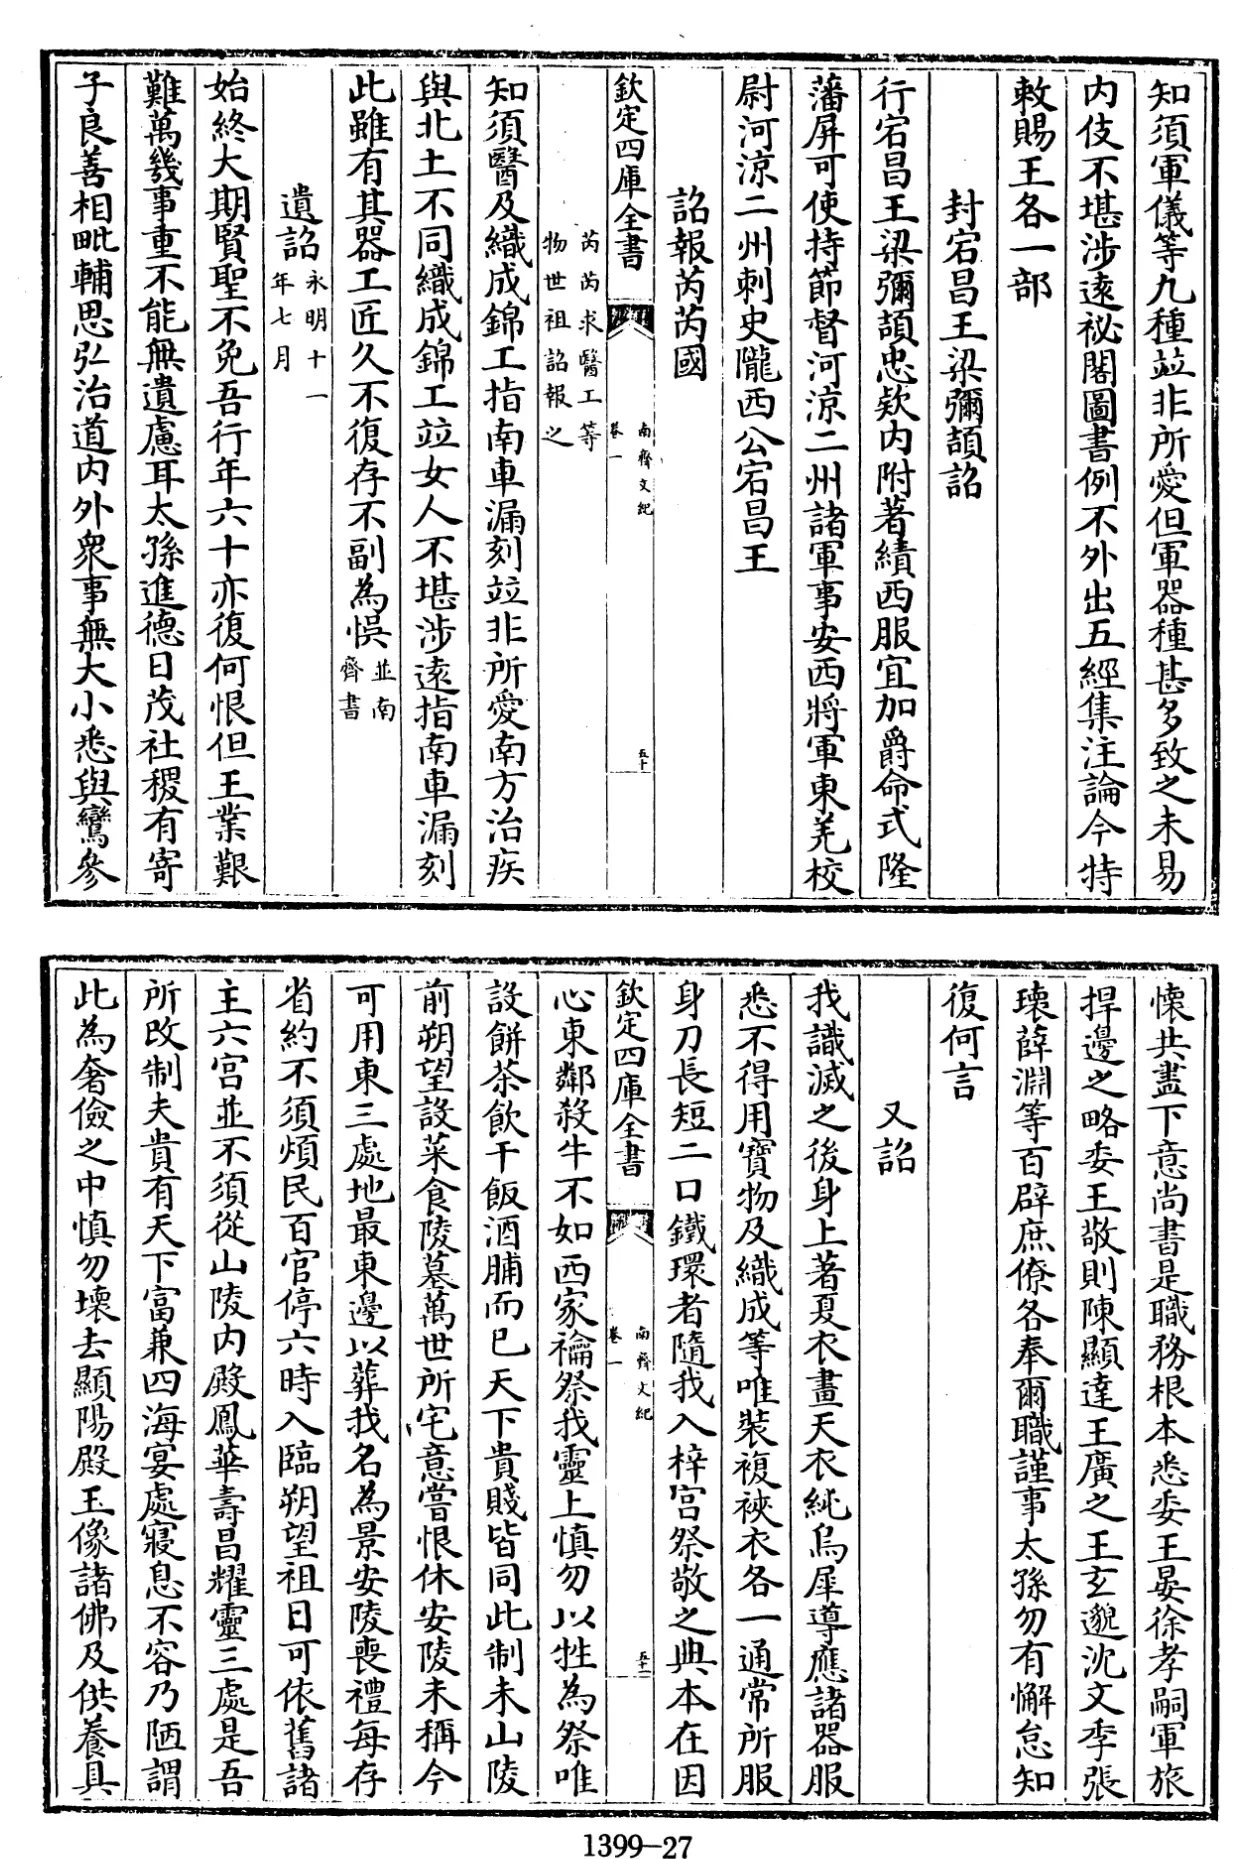 知須軍儀等九種竝非所愛但軍器種甚多致之未易
内伎不堪涉逺祕閣圖書例不外出五經集注論今特
敕賜王各一部
封宕昌王梁彌頡詔
行宕昌王梁彌頡忠欵内附著績西服宜加爵命式隆
藩屏可使持節督河涼二州諸軍事安西將軍東羌校
尉河涼二州刺史隴西公宕昌王
詔報芮芮國
欽定四庫全書
南齊文紀
卷一
五十
芮芮求醫工等
物世祖詔報之
知須醫及織成錦工指南車漏刻竝非所愛南方治疾
與北土不同織成錦工竝女人不堪涉逺指南車漏刻
此雖有其器工匠久不復存不副為悮並南
齊書
遺詔永明十一
年七月
始終大期賢聖不免吾行年六十亦復何恨但王業艱
難萬幾事重不能無遺慮耳太孫進德日茂社稷有寄
子良善相毗輔思弘治道内外衆事無大小悉與鸞參
懐共盡下意尚書是職務根本悉委王晏徐孝嗣軍旅
捍邊之略委王敬則陳顯達王廣之王玄邈沈文季張
瓌薛淵等百辟庶僚各奉爾職謹事太孫勿有懈怠知
復何言
又詔
我識滅之後身上著夏衣畫天衣純烏犀導應諸器服
悉不得用寶物及織成等唯裝複裌衣各一通常所服
身刀長短二口鐵環者隨我入梓宫祭敬之典本在因
欽定四庫全書
南齊文紀
卷一
五十一
心東鄰殺牛不如西家禴祭我靈上慎勿以牲為祭唯
設餅茶飲干飯酒脯而已天下貴賤皆同此制未山陵
前朔望設菜食陵墓萬世所宅意嘗恨休安陵未稱今
可用東三處地最東邊以葬我名為景安陵喪禮每存
省約不須煩民百官停六時入臨朔望祖日可依舊諸
主六宫並不須從山陵内殿鳳華壽昌耀靈三處是吾
所改制夫貴有天下富兼四海宴處寢息不容乃陋謂
此為奢儉之中慎勿壊去顯陽殿玉像諸佛及供養具
1399—27